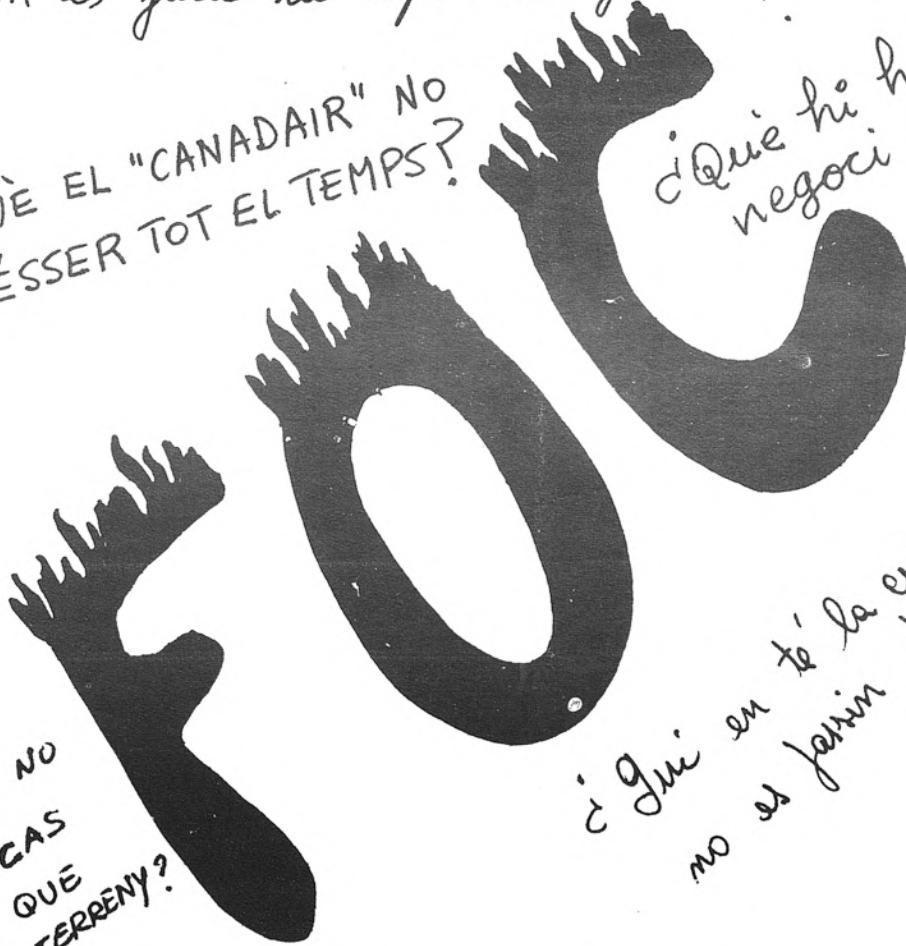 EL "CANADAIR" NO
ÉSSER TOT EL TEMPS?
¿Què hi
negoci
FOC
NO
CAS
QUE
TERRENY?
¿Qui en té la
no es fassin